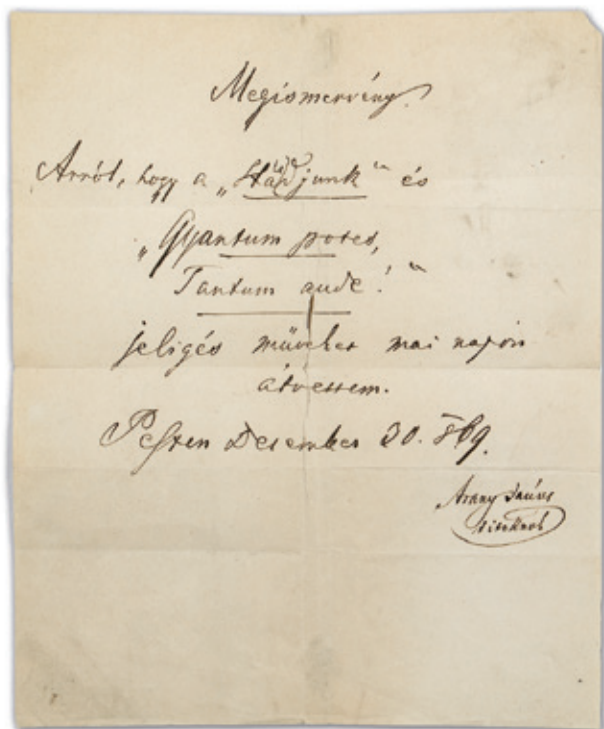 Megismervény.
Arról, hogy a „ és
„Quantum potes,
Tantum aude!“
jeligés műveket mai napon
átvettem.
Pesten December 30. 869.
Arany János
titoknok